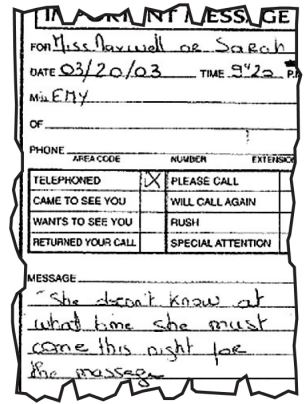 IMPORTANT MESSAGE
FOR Miss Maxwell or Sarah
DATE 03/20/03 TIME 9:20 P.M
M is EMY
OF
PHONE
AREA CODE NUMBER EXTENSION
TELEPHONED X PLEASE CALL
CAME TO SEE YOU WILL CALL AGAIN
WANTS TO SEE YOU RUSH
RETURNED YOUR CALL SPECIAL ATTENTION
MESSAGE
"She doesn't know at
what time she must
come this night for
the massage